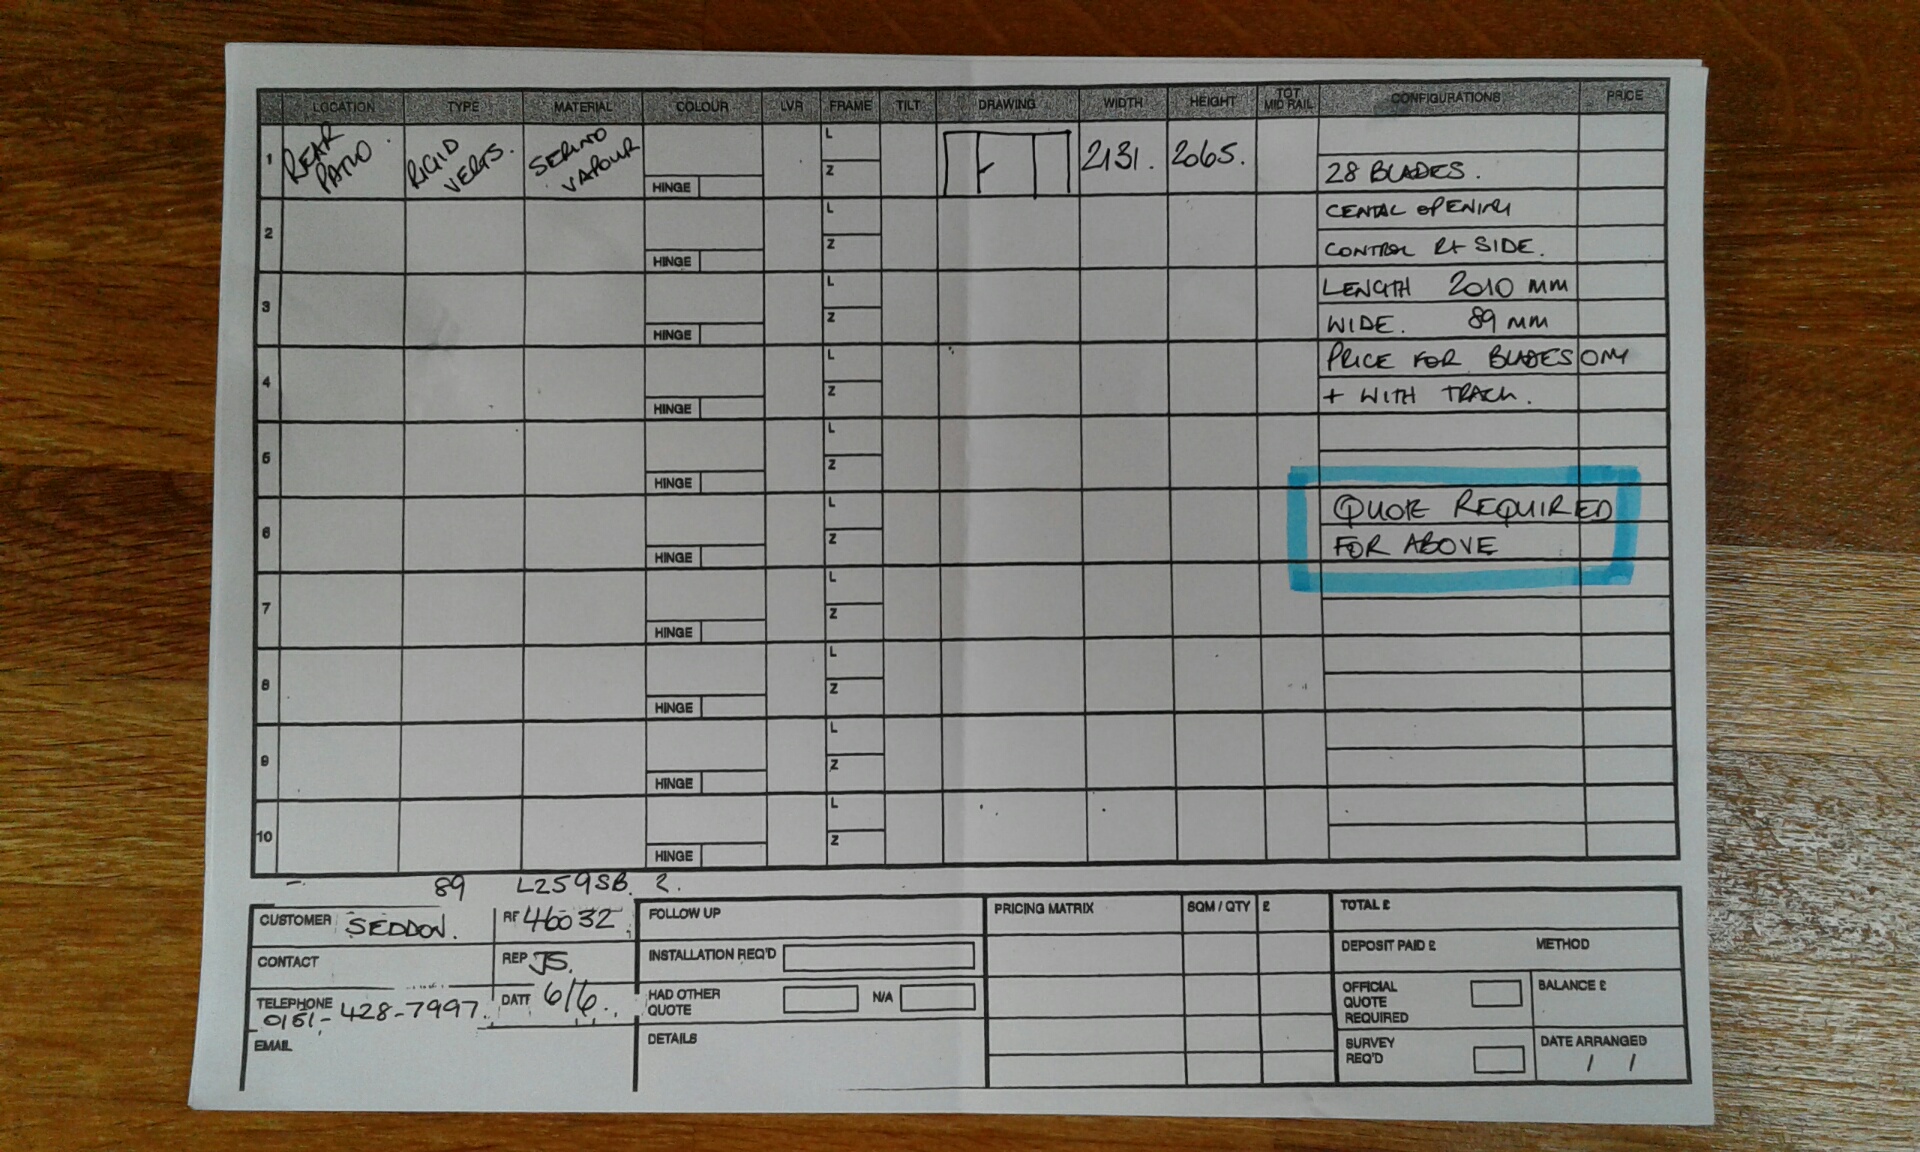 LOCATION TYPE MATERIAL COLOUR LVR FRAME TILT DRAWING WIDTH HEIGHT TOT MID RAIL CONFIGURATIONS PRICE
1 REAR PATIO. RIGID VERTS. VAPOUR HINGE L Z 2131. 2065.
28 BLADES.
2 HINGE L Z
CENTAL OPENING
CONTROL Rt SIDE.
3 HINGE L Z
LENGTH 2010 MM
WIDE. 89 MM
4 HINGE L Z
PRICE FOR BLADES ONLY
+ WITH TRACK.
5 HINGE L Z
6 HINGE L Z
QUOTE REQUIRED
FOR ABOVE
7 HINGE L Z
8 HINGE L Z
9 HINGE L Z
10 HINGE L Z
89 L259SB 2.
CUSTOMER SEDDON. RF 46032
CONTACT REP JS.
TELEPHONE 0151-428-7997. DATE 6/6.
EMAIL
FOLLOW UP
INSTALLATION REQ'D
HAD OTHER QUOTE N/A
DETAILS
PRICING MATRIX SQM / QTY £
TOTAL £
DEPOSIT PAID £ METHOD
OFFICIAL QUOTE REQUIRED BALANCE £
SURVEY REQ'D DATE ARRANGED
/ /